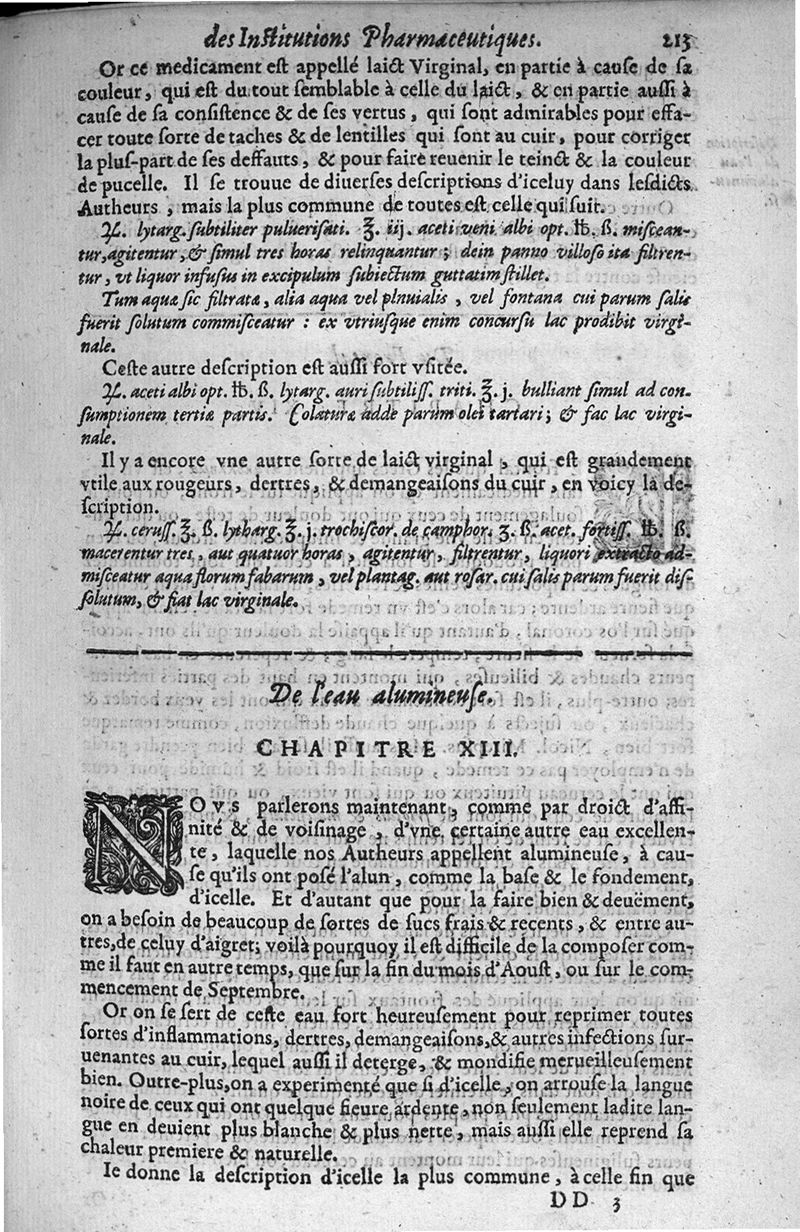 des Institutions Pharmaceutiques. 213
Or ce medicament est appellé laict Virginal, en partie à cause de sa
couleur, qui est du tout semblable à celle du laict, & en partie aussi à
cause de sa consistence & de ses vertus, qui sont admirables pour effa-
cer toute sorte de taches & de lentilles qui sont au cuir, pour corriger
la plus-part de ses deffauts, & pour faire reuenir le teinct & la couleur
de pucelle. Il se trouue de diuerses descriptions d'iceluy dans lesdicts
Autheurs, mais la plus commune de toutes est celle qui suit.
♃. lytarg. subtiliter puluerisati. ℥. iij. aceti veni albi opt. ℔. ß. miscean-
tur, agitentur, & simul tres horas relinquantur; dein panno villoso ita filtren-
tur, vt liquor infusus in excipulum subiectum guttatim stillet.
Tum aquæ sic filtratæ, alia aqua vel plnuialis, vel fontana cui parum salis
fuerit solutum commisceatur : ex vtriusque enim concursu lac prodibit virgi-
nale.
Ceste autre description est aussi fort vsitée.
♃. aceti albi opt. ℔. ß. lytarg. auri subtiliss. triti. ℥. j. bulliant simul ad con-
sumptionem tertiæ partis. Colaturæ adde parum olei tartari; & fac lac virgi-
nale.
Il y a encore vne autre sorte de laict virginal, qui est grandement
vtile aux rougeurs, dertres, & demangeaisons du cuir, en voicy la de-
scription.
♃. ceruss. ℥. ß. lytharg. ℥. j. trochiscor. de camphor. ʒ. ß. acet. fortiss. ℔. ß.
macerentur tres, aut quatuor horas, agitentur, filtrentur, liquori extracto ad-
misceatur aqua florum fabarum, vel plantag. aut rosar. cui salis parum fuerit dis-
solutum, & fiat lac virginale.
De l'eau alumineuse.
CHAPITRE XIII.
NOVS parlerons maintenant, comme par droict d'affi-
nité & de voisinage, d'vne certaine autre eau excellen-
te, laquelle nos Autheurs appellent alumineuse, à cau-
se qu'ils ont posé l'alun, comme la base & le fondement,
d'icelle. Et d'autant que pour la faire bien & deuëment,
on a besoin de beaucoup de sortes de sucs frais & recents, & entre au-
tres, de celuy d'aigret; voilà pourquoy il est difficile de la composer com-
me il faut en autre temps, que sur la fin du mois d'Aoust, ou sur le com-
mencement de Septembre.
Or on se sert de ceste eau fort heureusement pour reprimer toutes
sortes d'inflammations, dertres, demangeaisons, & autres infections sur-
uenantes au cuir, lequel aussi il deterge, & mondifie merueilleusement
bien. Outre-plus, on a experimenté que si d'icelle, on arrouse la langue
noire de ceux qui ont quelque fieure ardente, non seulement ladite lan-
gue en deuient plus blanche & plus nette, mais aussi elle reprend sa
chaleur premiere & naturelle.
Ie donne la description d'icelle la plus commune, à celle fin que
DD 3